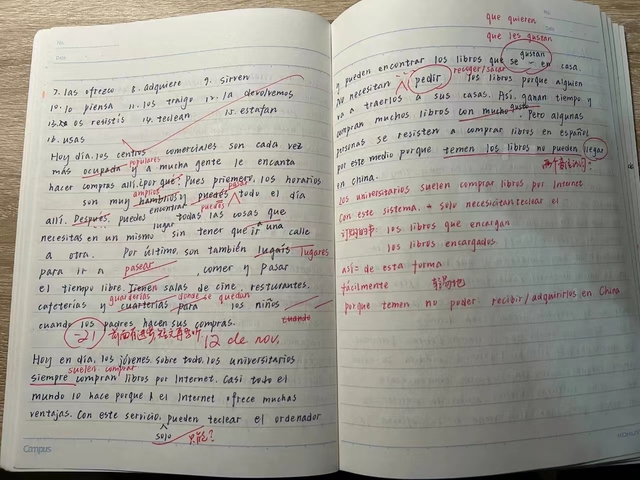 7. las ofrezco 8. adquiere 9. sirven
10. lo piensa 11. los traigo 12. la devolvemos
os resistís 14. teclean 15. estafan
16. usas
Hoy día, los centros comerciales son cada vez
populares
más ocupada y a mucha gente le encanta
hacer compras allí. ¿por qué? Pues priemero, los horarios
amplios pasar
son muy hambrios y puedes todo el día
puedes
allí. Después, puedes encontrar todas las cosas que
lugar
necesitas en un mismo sin tener que ir a una calle
a otra. Por último, son también lugaís lugares
para ir a pasear, comer y pasar
el tiempo libre. Tienen salas de cine, resturantes,
guarderías donde se quedan
cafeterías y cuarterias para los niños
cuando los padres hacen sus compras. cuando
-21
12 de nov.
Hoy en día, los jóvenes, sobre todo, los universitarios
suelen comprar
siempre compran libros por Internet. Casi todo el
mundo lo hace porque el Internet ofrece muchas
ventajas. Con este servicio, pueden teclear el ordenador
solo 只能?
Campus
que quieren
que les gustan
gustan
y pueden encontrar los libros que se en casa.
recoger/sacar
No necesitan pedir los libros porque alguien
va a traerlos a sus casas. Así, ganan tiempo y
compran muchos libros con mucho gusto. Pero algunas
personas se resisten a comprar libros en español
por este medio porque temen los libros no pueden llegar
en China.
los universitarios suelen comprar libros por Internet
Con este sistema, solo necesitan teclear el
los libros que encargan
los libros encargados.
así = de esta forma
fácilmente
porque temen no poder recibir/adquirirlos en China